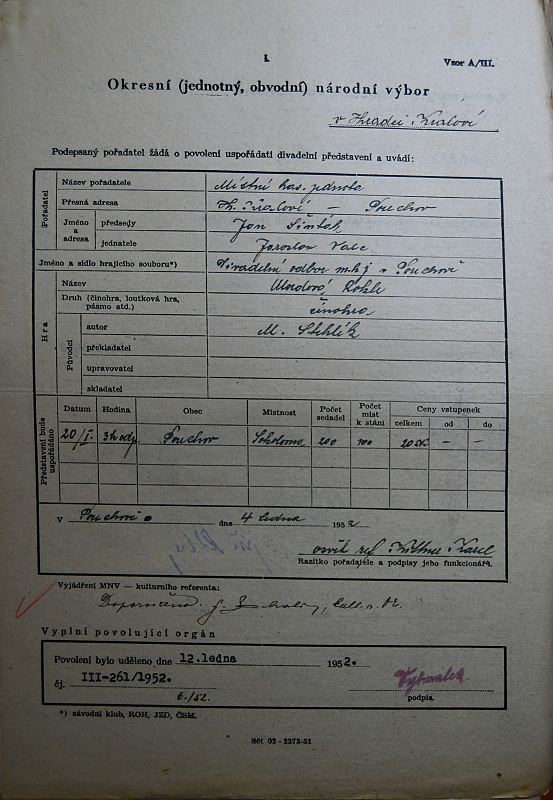 I.
Vzor A/III.
Okresní (jednotný, obvodní) národní výbor
v Hradci Králové
Podepsaný pořadatel žádá o povolení uspořádati divadelní představení a uvádí:
Pořadatel
Název pořadatele Místní has. jednota
Přesná adresa Hr. Králové – Pouchov
Jméno a adresa
předsedy Jan
jednatele Jaroslav
Jméno a sídlo hrajícího souboru*) Divadelní odbor m.h.j. v Pouchově
Hra
Název
Druh (činohra, loutková hra, pásmo atd.) činohra
Původci
autor M. Stehlík
překladatel
upravovatel
skladatel
Představení bude uspořádáno
Datum Hodina Obec Místnost Počet sedadel Počet míst k stání Ceny vstupenek
celkem od do
20/I. 3 hody. Pouchov Sokolovna 200 100 20 Kčs – –
V Pouchově dne 4 ledna 1952.
osvět. ref. Karel
Razítko pořadatele a podpisy jeho funkcionářů.
Vyjádření MNV — kulturního referenta:
Doporučeno.
Vyplní povolující orgán
Povolení bylo uděleno dne 12.ledna 1952.
čj. III-261/1952.
6./52.
podpis.
*) závodní klub, ROH, JZD, ČSM.
Sčt 02 - 2372-51